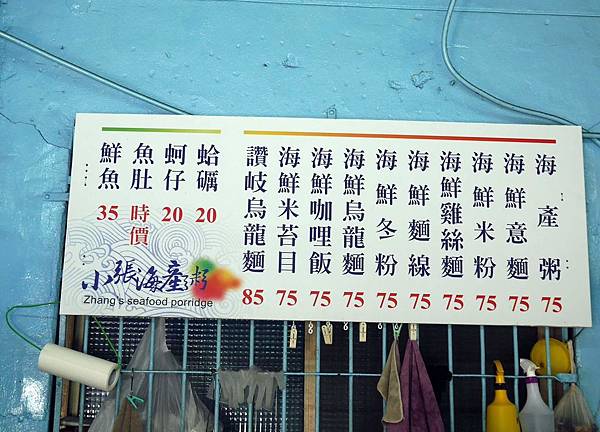 海產粥 75
海鮮意麵 75
海鮮米粉 75
海鮮雞絲麵 75
海鮮麵線 75
海鮮冬粉 75
海鮮烏龍麵 75
海鮮咖哩飯 75
海鮮米苔目 75
讚岐烏龍麵 85
蛤礪 20
蚵仔 20
魚肚 時價
鮮魚 35
小張海產粥
Zhang's seafood porridge